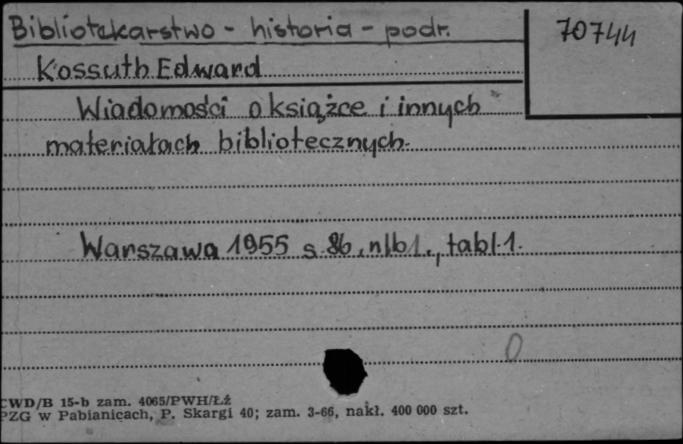 Bibliotekarstwo - historia - podr.
70744
Kossuth Edward
Wiadomości o książce i innych
materiałach bibliotecznych.
Warszawa 1955 s. 86, nlb 1., tabl. 1.
0
CWD/B 15-b zam. 4065/PWH/Łź
PZG w Pabianicach, P. Skargi 40; zam. 3-66, nakł. 400 000 szt.